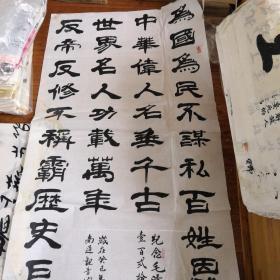 為國為民不謀私百姓因
中華偉人名垂千古
世界名人功載萬年
反帝反修不稱霸歷史巨
紀念毛
壹百弍拾
歲在癸巳